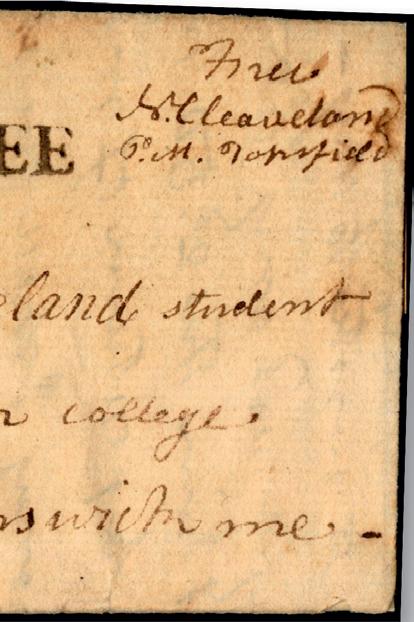 Free
N. Cleaveland
P. M. Topsfield
EE
eland student
college.
nswick me -